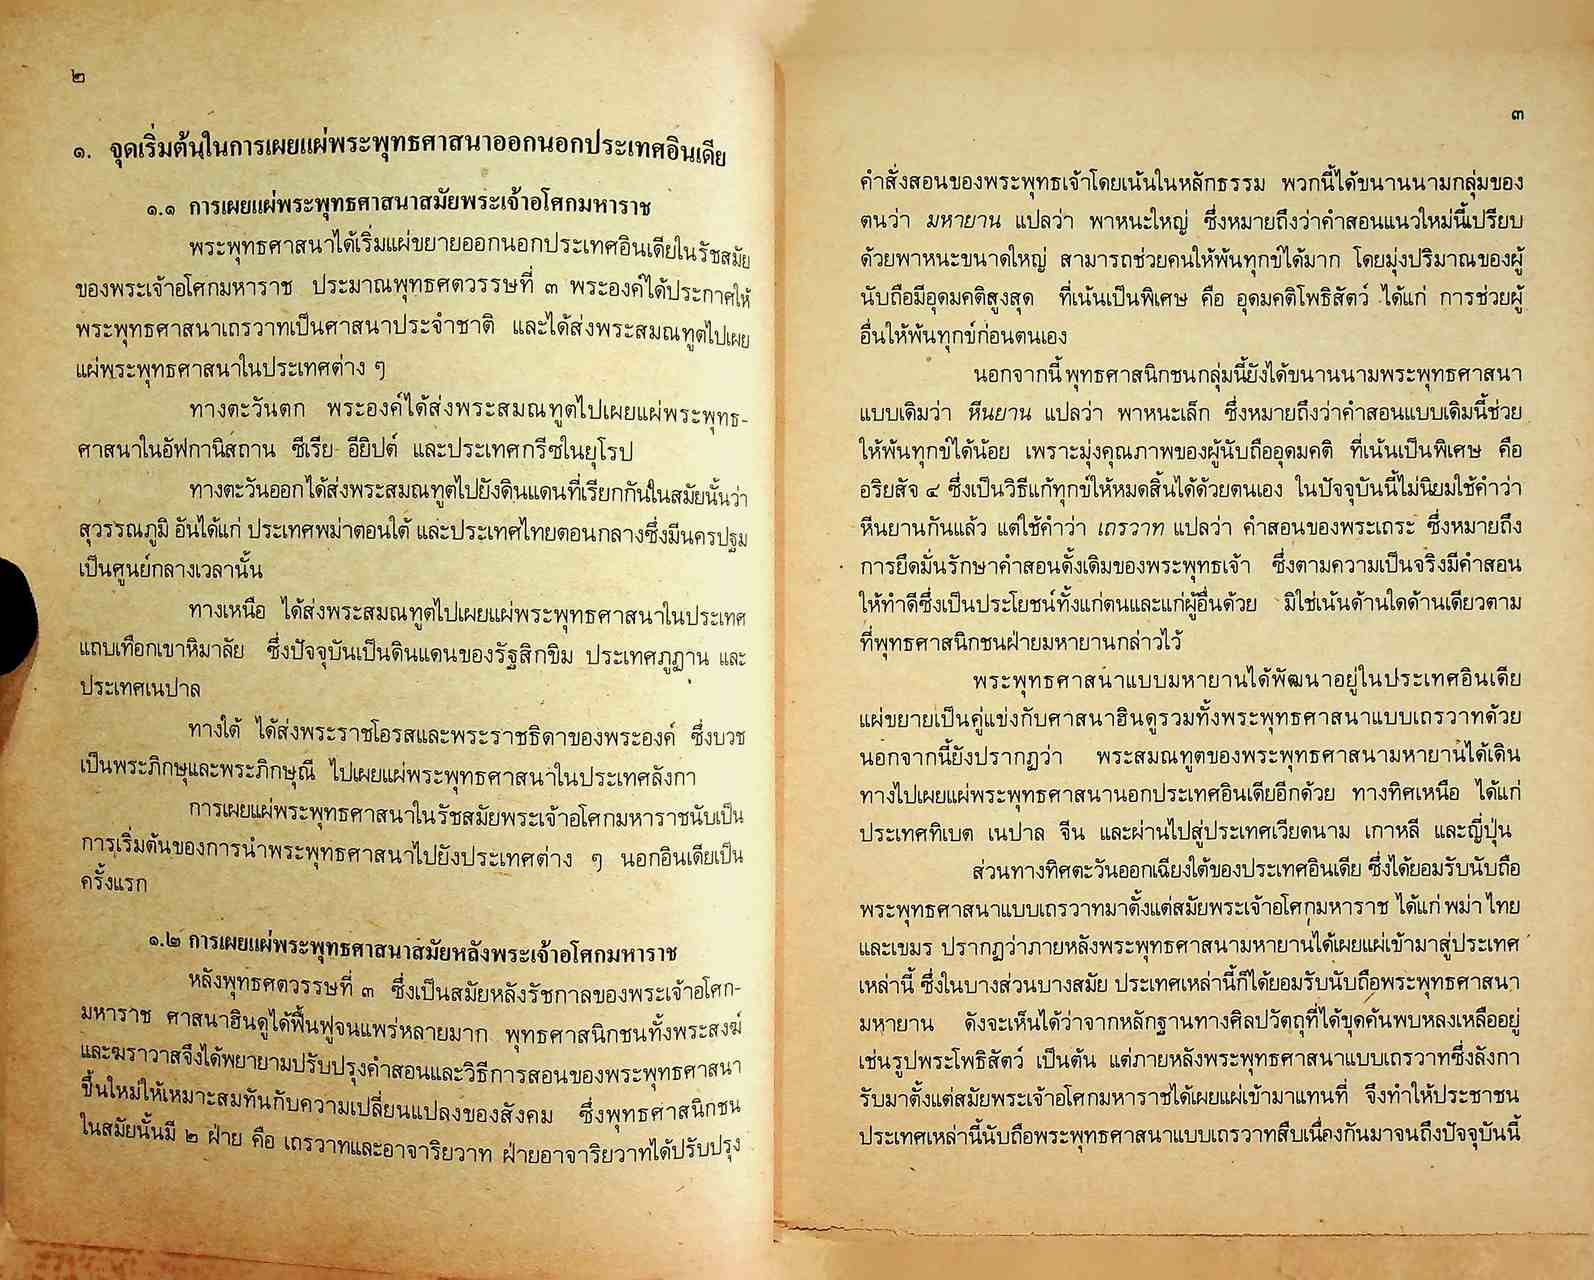 ๒
๑. จุดเริ่มต้นในการเผยแผ่พระพุทธศาสนาออกนอกประเทศอินเดีย
๑.๑ การเผยแผ่พระพุทธศาสนาสมัยพระเจ้าอโศกมหาราช
พระพุทธศาสนาได้เริ่มแผ่ขยายออกนอกประเทศอินเดียในรัชสมัย
ของพระเจ้าอโศกมหาราช ประมาณพุทธศตวรรษที่ ๓ พระองค์ได้ประกาศให้
พระพุทธศาสนาเถรวาทเป็นศาสนาประจำชาติ และได้ส่งพระสมณทูตไปเผย
แผ่พระพุทธศาสนาในประเทศต่าง ๆ
ทางตะวันตก พระองค์ได้ส่งพระสมณทูตไปเผยแผ่พระพุทธ-
ศาสนาในอัฟกานิสถาน ซีเรีย อียิปต์ และประเทศกรีซในยุโรป
ทางตะวันออกได้ส่งพระสมณทูตไปยังดินแดนที่เรียกกันในสมัยนั้นว่า
สุวรรณภูมิ อันได้แก่ ประเทศพม่าตอนใต้ และประเทศไทยตอนกลางซึ่งมีนครปฐม
เป็นศูนย์กลางเวลานั้น
ทางเหนือ ได้ส่งพระสมณทูตไปเผยแผ่พระพุทธศาสนาในประเทศ
แถบเทือกเขาหิมาลัย ซึ่งปัจจุบันเป็นดินแดนของรัฐสิกขิม ประเทศภูฏาน และ
ประเทศเนปาล
ทางใต้ ได้ส่งพระราชโอรสและพระราชธิดาของพระองค์ ซึ่งบวช
เป็นพระภิกษุและพระภิกษุณี ไปเผยแผ่พระพุทธศาสนาในประเทศลังกา
การเผยแผ่พระพุทธศาสนาในรัชสมัยพระเจ้าอโศกมหาราชนับเป็น
การเริ่มต้นของการนำพระพุทธศาสนาไปยังประเทศต่าง ๆ นอกอินเดียเป็น
ครั้งแรก
๑.๒ การเผยแผ่พระพุทธศาสนาสมัยหลังพระเจ้าอโศกมหาราช
หลังพุทธศตวรรษที่ ๓ ซึ่งเป็นสมัยหลังรัชกาลของพระเจ้าอโศก-
มหาราช ศาสนาฮินดูได้ฟื้นฟูจนแพร่หลายมาก พุทธศาสนิกชนทั้งพระสงฆ์
และฆราวาสจึงได้พยายามปรับปรุงคำสอนและวิธีการสอนของพระพุทธศาสนา
ขึ้นใหม่ให้เหมาะสมทันกับความเปลี่ยนแปลงของสังคม ซึ่งพุทธศาสนิกชน
ในสมัยนั้นมี ๒ ฝ่าย คือ เถรวาทและอาจาริยวาท ฝ่ายอาจาริยวาทได้ปรับปรุง
๓
คำสั่งสอนของพระพุทธเจ้าโดยเน้นในหลักธรรม พวกนี้ได้ขนานนามกลุ่มของ
ตนว่า มหายาน แปลว่า พาหนะใหญ่ ซึ่งหมายถึงว่าคำสอนแนวใหม่นี้เปรียบ
ด้วยพาหนะขนาดใหญ่ สามารถช่วยคนให้พ้นทุกข์ได้มาก โดยมุ่งปริมาณของผู้
นับถือมีอุดมคติสูงสุด ที่เน้นเป็นพิเศษ คือ อุดมคติโพธิสัตว์ ได้แก่ การช่วยผู้
อื่นให้พ้นทุกข์ก่อนตนเอง
นอกจากนี้ พุทธศาสนิกชนกลุ่มนี้ยังได้ขนานนามพระพุทธศาสนา
แบบเดิมว่า หีนยาน แปลว่า พาหนะเล็ก ซึ่งหมายถึงว่าคำสอนแบบเดิมนี้ช่วย
ให้พ้นทุกข์ได้น้อย เพราะมุ่งคุณภาพของผู้นับถืออุดมคติ ที่เน้นเป็นพิเศษ คือ
อริยสัจ ๔ ซึ่งเป็นวิธีแก้ทุกข์ให้หมดสิ้นได้ด้วยตนเอง ในปัจจุบันนี้ไม่นิยมใช้คำว่า
หีนยานกันแล้ว แต่ใช้คำว่า เถรวาท แปลว่า คำสอนของพระเถระ ซึ่งหมายถึง
การยึดมั่นรักษาคำสอนดั้งเดิมของพระพุทธเจ้า ซึ่งตามความเป็นจริงมีคำสอน
ให้ทำดีซึ่งเป็นประโยชน์ทั้งแก่ตนและแก่ผู้อื่นด้วย มิใช่เน้นด้านใดด้านเดียวตาม
ที่พุทธศาสนิกชนฝ่ายมหายานกล่าวไว้
พระพุทธศาสนาแบบมหายานได้พัฒนาอยู่ในประเทศอินเดีย
แผ่ขยายเป็นคู่แข่งกับศาสนาฮินดูรวมทั้งพระพุทธศาสนาแบบเถรวาทด้วย
นอกจากนี้ยังปรากฏว่า พระสมณทูตของพระพุทธศาสนามหายานได้เดิน
ทางไปเผยแผ่พระพุทธศาสนานอกประเทศอินเดียอีกด้วย ทางทิศเหนือ ได้แก่
ประเทศทิเบต เนปาล จีน และผ่านไปสู่ประเทศเวียดนาม เกาหลี และญี่ปุ่น
ส่วนทางทิศตะวันออกเฉียงใต้ของประเทศอินเดีย ซึ่งได้ยอมรับนับถือ
พระพุทธศาสนาแบบเถรวาทมาตั้งแต่สมัยพระเจ้าอโศกมหาราช ได้แก่ พม่า ไทย
และเขมร ปรากฏว่าภายหลังพระพุทธศาสนามหายานได้เผยแผ่เข้ามาสู่ประเทศ
เหล่านี้ ซึ่งในบางส่วนบางสมัย ประเทศเหล่านี้ก็ได้ยอมรับนับถือพระพุทธศาสนา
มหายาน ดังจะเห็นได้ว่าจากหลักฐานทางศิลปวัตถุที่ได้ขุดค้นพบหลงเหลืออยู่
เช่นรูปพระโพธิสัตว์ เป็นต้น แต่ภายหลังพระพุทธศาสนาแบบเถรวาทซึ่งลังกา
รับมาตั้งแต่สมัยพระเจ้าอโศกมหาราชได้เผยแผ่เข้ามาแทนที่ จึงทำให้ประชาชน
ประเทศเหล่านี้นับถือพระพุทธศาสนาแบบเถรวาทสืบเนื่องกันมาจนถึงปัจจุบันนี้